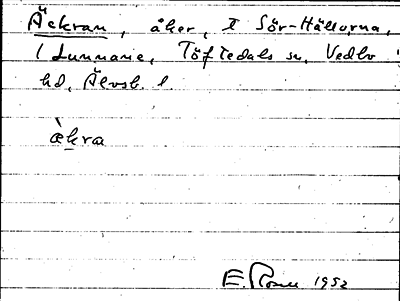 Äckran, åker, t Sör-Hällorna,
1 Lunnane, Töftedals sn, Vedbo
hd, Älvsb. l.
àkra
E. 1952